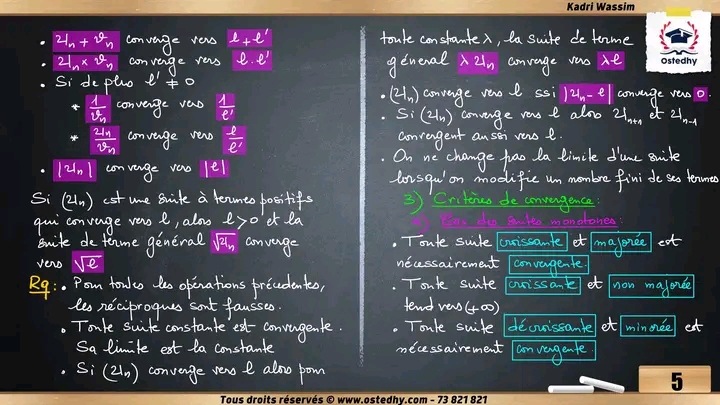 Kadri Wassim
Ostedhy
• Un + Vn converge vers l + l'
• Un × Vn converge vers l . l'
• Si de plus l' ≠ 0
* 1/Vn converge vers 1/l'
* Un/Vn converge vers l/l'
• |Un| converge vers |l|
Si (Un) est une suite à termes positifs
qui converge vers l, alors l ⩾ 0 et la
suite de terme général √Un converge
vers √l
Rq : • Pour toutes les opérations précedentes,
les réciproques sont fausses.
• Toute suite constante est convergente.
Sa limite est la constante
• Si (Un) converge vers l alors pour
toute constante λ, la suite de terme
géneral λ Un converge vers λl
• (Un) converge vers l ssi |Un - l| converge vers 0.
• Si (Un) converge vers l alors Un+1 et Un-1
convergent aussi vers l.
• On ne change pas la limite d'une suite
lorsqu'on modifie un nombre fini de ses termes
3) Critères de convergence :
Cas des suites monotones :
• Toute suite croissante et majorée est
nécessairement convergente.
• Toute suite croissante et non majorée
tend vers (+∞)
• Toute suite décroissante et minorée est
nécessairement convergente.
5
Tous droits réservés © www.ostedhy.com - 73 821 821